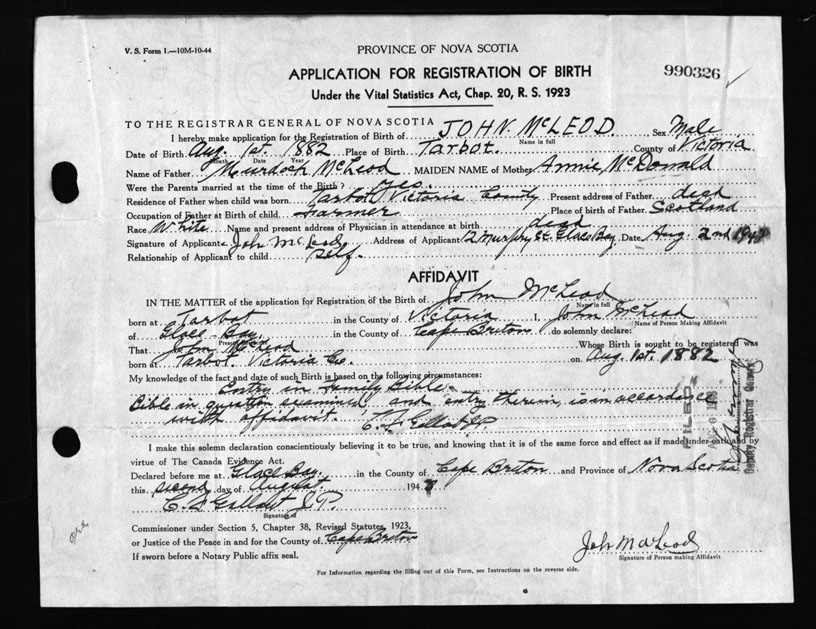 V. S. Form 1.—10M-10-44
PROVINCE OF NOVA SCOTIA
APPLICATION FOR REGISTRATION OF BIRTH
990326
Under the Vital Statistics Act, Chap. 20, R. S. 1923
TO THE REGISTRAR GENERAL OF NOVA SCOTIA
I hereby make application for the Registration of Birth of JOHN. McLEOD. Sex Male
Name in full
Date of Birth Aug. 1st. 1882 Place of Birth Tarbot. County of Victoria
Month Date Year
Name of Father Murdoch McLeod MAIDEN NAME of Mother Annie McDonald
Were the Parents married at the time of the Birth? yes.
Residence of Father when child was born Tarbot Victoria County Present address of Father died
Occupation of Father at Birth of child Farmer Place of birth of Father Scotland
Race White Name and present address of Physician in attendance at birth dead
Signature of Applicant John McLeod Address of Applicant 12 Murphy St. Glace Bay. Date Aug. 2nd 194
Relationship of Applicant to child Self.
AFFIDAVIT
IN THE MATTER of the application for Registration of the Birth of John McLeod
Name in full
born at Tarbot in the County of Victoria I, John McLeod
Name of Person Making Affidavit
of Glace Bay in the County of Cape Breton do solemnly declare:
Present
That John McLeod Whose Birth is sought to be registered was
born at Tarbot. Victoria Co. on Aug. 1st. 1882
My knowledge of the fact and date of such Birth is based on the following circumstances:
Entry in Family Bible.
Bible in question examined and entry therein, is in accordance
with affidavit.
FILED
Deputy Registrar General
I make this solemn declaration conscientiously believing it to be true, and knowing that it is of the same force and effect as if made under oath and by
virtue of The Canada Evidence Act.
Declared before me at Glace Bay in the County of Cape Breton and Province of Nova Scotia
this second day of August 194
Signature of
Commissioner under Section 5, Chapter 38, Revised Statutes, 1923,
or Justice of the Peace in and for the County of Cape Breton
If sworn before a Notary Public affix seal.
John McLeod
Signature of Person making Affidavit
For Information regarding the filling out of this Form, see Instructions on the reverse side.